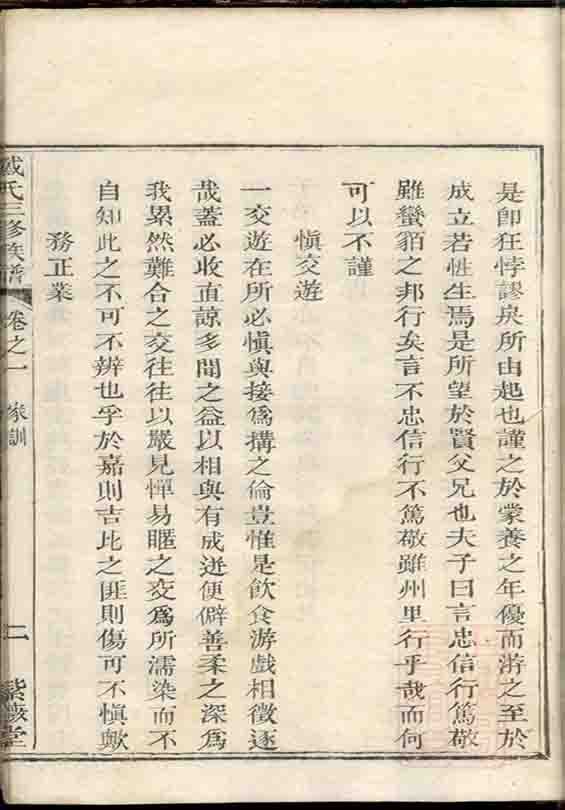 是卽狂悖謬戾所由起也謹之於蒙養之年優而游之至於
成立若性生焉是所望於賢父兄也夫子曰言忠信行篤敬
雖蠻貊之邦行矣言不忠信行不篤敬雖州里行乎哉而何
可以不謹
愼交遊
一交遊在所必愼與接爲搆之倫豈惟是飮食游戲相徵逐
哉蓋必收直諒多聞之益以相與有成迸便僻善柔之深爲
我累然難合之交往往以嚴見憚易暱之交爲所濡染而不
自知此之不可不辨也乎於嘉則吉比之匪則傷可不愼歟
務正業
戴氏三修族譜
卷之一
家訓
二
紫
堂